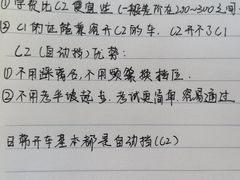 ① 学费比C2便宜些(一般差价在200~300之间)
② C1的证能兼开C2的车, C2开不了C1
C2 (自动挡) 优势:
① 不用踩离合, 不用频繁换挡位
② 不用考半坡起步, 考试更简单, 容易通过
日常开车基本都是自动挡(C2)